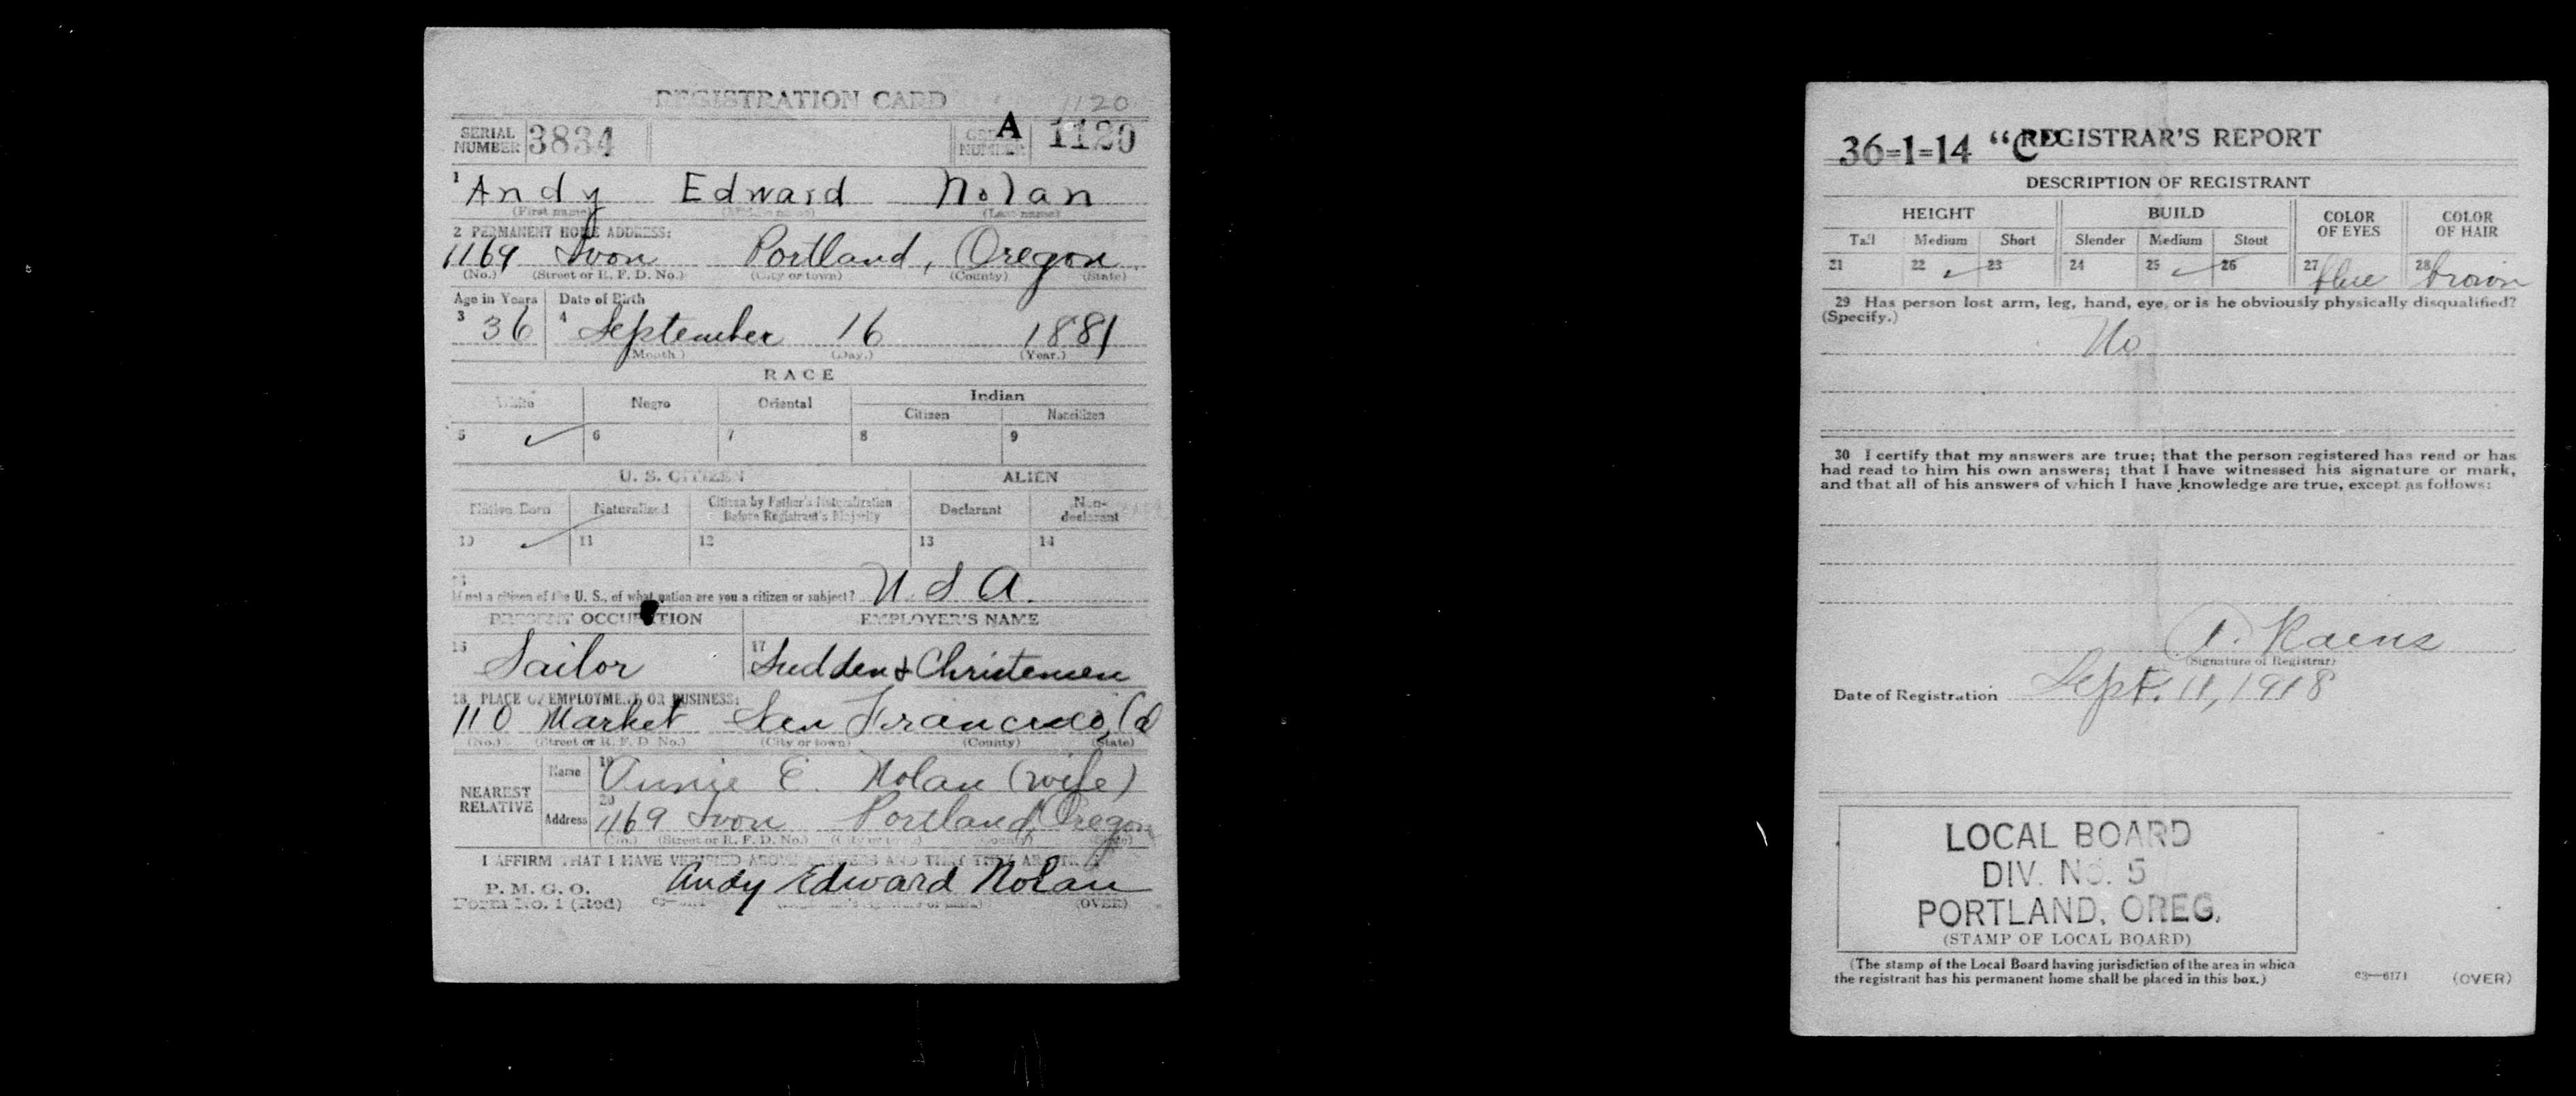 REGISTRATION CARD 1120
SERIAL NUMBER 3834 ORDER NUMBER A 1120
1 Andy Edward Nolan
(First name) (Middle name) (Last name)
2 PERMANENT HOME ADDRESS:
1169 Ivon Portland, Oregon
(No.) (Street or R. F. D. No.) (City or town) (County) (State)
Age in Years Date of Birth
3 36 4 September 16 1881
(Month.) (Day.) (Year.)
RACE
White Negro Oriental Indian
Citizen Noncitizen
5 ✓ 6 7 8 9
U. S. CITIZEN ALIEN
Native Born Naturalized Citizen by Father's Naturalization Before Registrant's Majority Declarant Non-declarant
10 ✓ 11 12 13 14
15
If not a citizen of the U. S., of what nation are you a citizen or subject? U. S A.
PRESENT OCCUPATION EMPLOYER'S NAME
16 Sailor 17 Sudden & Christensen
18 PLACE OF EMPLOYMENT OR BUSINESS:
110 Market San Francisco, Cal
(No.) (Street or R. F. D. No.) (City or town) (County) (State)
NEAREST RELATIVE
Name 19 Annie E. Nolan (wife)
Address 20 1169 Ivon Portland, Oregon
(No.) (Street or R. F. D. No.) (City or town) (County) (State)
I AFFIRM THAT I HAVE VERIFIED ABOVE ANSWERS AND THAT THEY ARE TRUE
P. M. G. O.
Form No. 1 (Red) Andy Edward Nolan
(OVER)
36=1=14 "C" REGISTRAR'S REPORT
DESCRIPTION OF REGISTRANT
HEIGHT BUILD COLOR OF EYES COLOR OF HAIR
Tall Medium Short Slender Medium Stout
21 22 ✓ 23 24 25 ✓ 26 27 blue 28 brown
29 Has person lost arm, leg, hand, eye, or is he obviously physically disqualified?
(Specify.)
No
30 I certify that my answers are true; that the person registered has read or has
had read to him his own answers; that I have witnessed his signature or mark,
and that all of his answers of which I have knowledge are true, except as follows:
Raens
(Signature of Registrar)
Date of Registration Sept. 11, 1918
LOCAL BOARD
DIV. NO. 5
PORTLAND, OREG.
(STAMP OF LOCAL BOARD)
(The stamp of the Local Board having jurisdiction of the area in which
the registrant has his permanent home shall be placed in this box.)
c3—6171 (OVER)